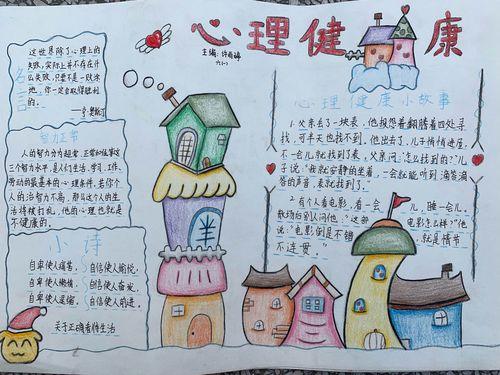 心理健康
主编:许雨婷
六(1)
名言
这世界除了心理上的
失败,实际上并不存在什
么失败,只要不是一败涂
地,你一定会取得胜利
的。
——亨·奥斯汀
智力正常
人的智力分为超常、正常和低常这
三个智力水平,是人们生活、学习、工作、
劳动的最基本的心理条件。若你个
人的智力不高,那么这个人的生
活将被打乱,他的心理也就是
不健康的。
小诗
自卑使人痛苦,自信使人愉悦,
自卑使人懒惰,自信使人奋发,
自卑使人退缩,自信使人前进。
关于正确看待生活
心理健康小故事
1. 父亲丢了一块表,他报怨着翻腾着四处寻
找,可半天也找不到,他出去了,儿子悄悄进屋,
不一会儿就找到了表,父亲问:怎么找到的?"儿
子说:"我就安静的坐着,一会就能听到滴答滴
答的声音,表就找到了。"
2. 有个人看电影,看一会儿,睡一会儿,
散场后别人问他:"这部电影怎么样?"他
说:"电影倒是不错,就是情节
不连贯。"